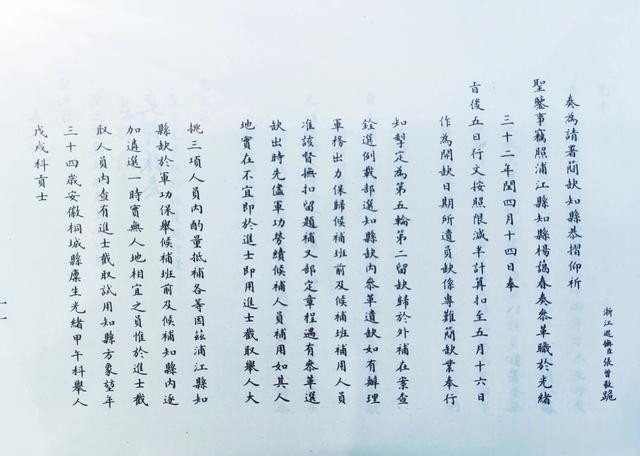 浙江巡撫臣張曾敭跪
奏為請署簡缺知縣恭摺仰祈
聖鑒事竊照浦江縣知縣楊蔭春奏參革職於光緒
三十二年閏四月十四日奉
旨後五日行文按照限減半計算扣至五月十六日
作為開缺日期所遺員缺係專難簡缺業奉行
知掣定為第五輪第二留缺歸於外補在案查
銓選例載部選知縣缺內參革遺缺如有辦理
軍務出力保歸候補班前及候補班補用人員
准該督撫扣留題補又部定章程遇有參革選
缺出時先儘軍功勞績候補人員補用如其人
地實在不宜即於進士即用進士截取舉人大
挑三項人員內酌量抵補各等因茲浦江縣知
縣缺於軍功保舉候補班前及候補知縣內逐
加遴選一時實無人地相宜之員惟於進士截
取人員內查有進士截取試用知縣方象堃年
三十四歲安徽桐城縣廩生光緒甲午科舉人
戊戌科貢士
一一